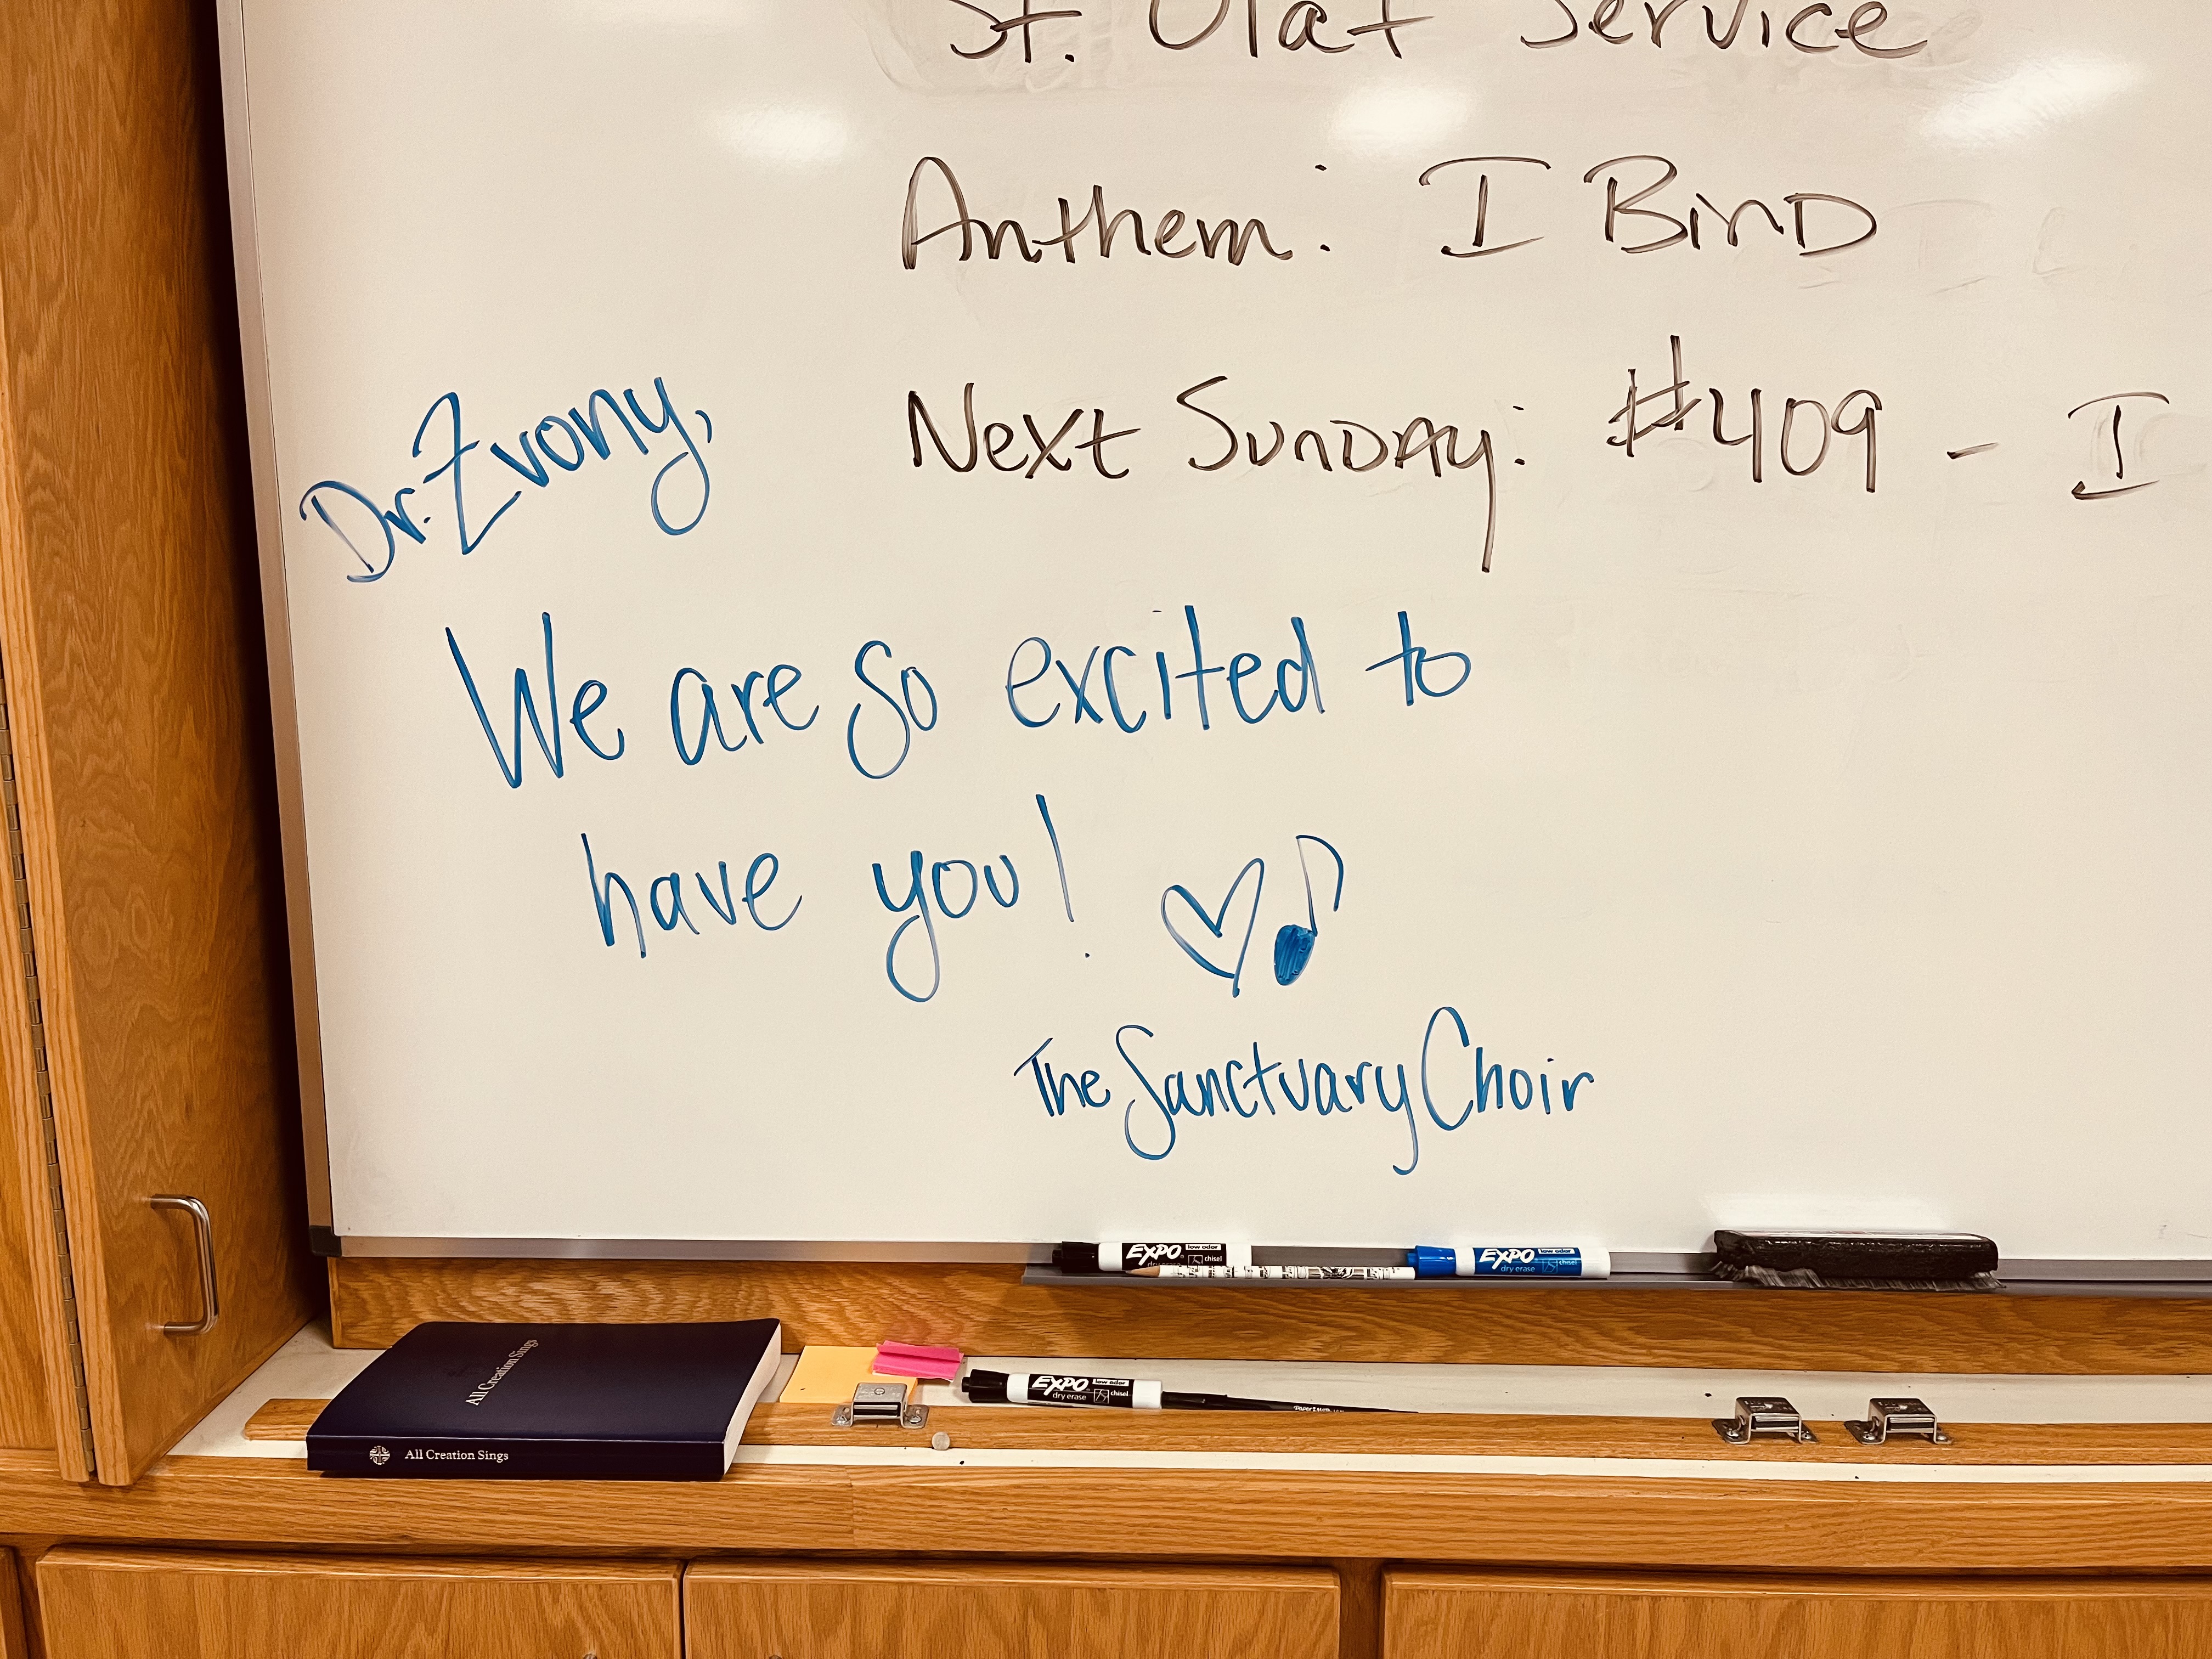 St. Olaf Service
Anthem: I Bind
Next Sunday: #409 - I
Dr. Zvony,
We are so excited to
have you!
The Sanctuary Choir
EXPO low odor
chisel
EXPO low odor
dry erase chisel
All Creation Sings
EXPO low odor
dry erase chisel
All Creation Sings